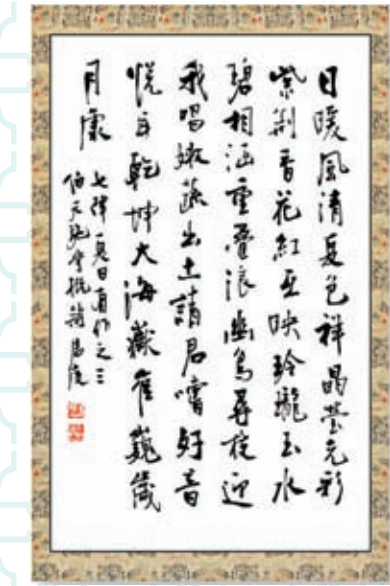 日暖風清夏色祥晶瑩光彩
紫荊香花紅互映玲瓏玉水
碧相涵重疊浪幽鳥尋枝迎
我唱嫩蔬出土請君嚐好音
悅耳乾坤大海嶽崔巍歲
月康
七律夏日有作之三
伯天施學概